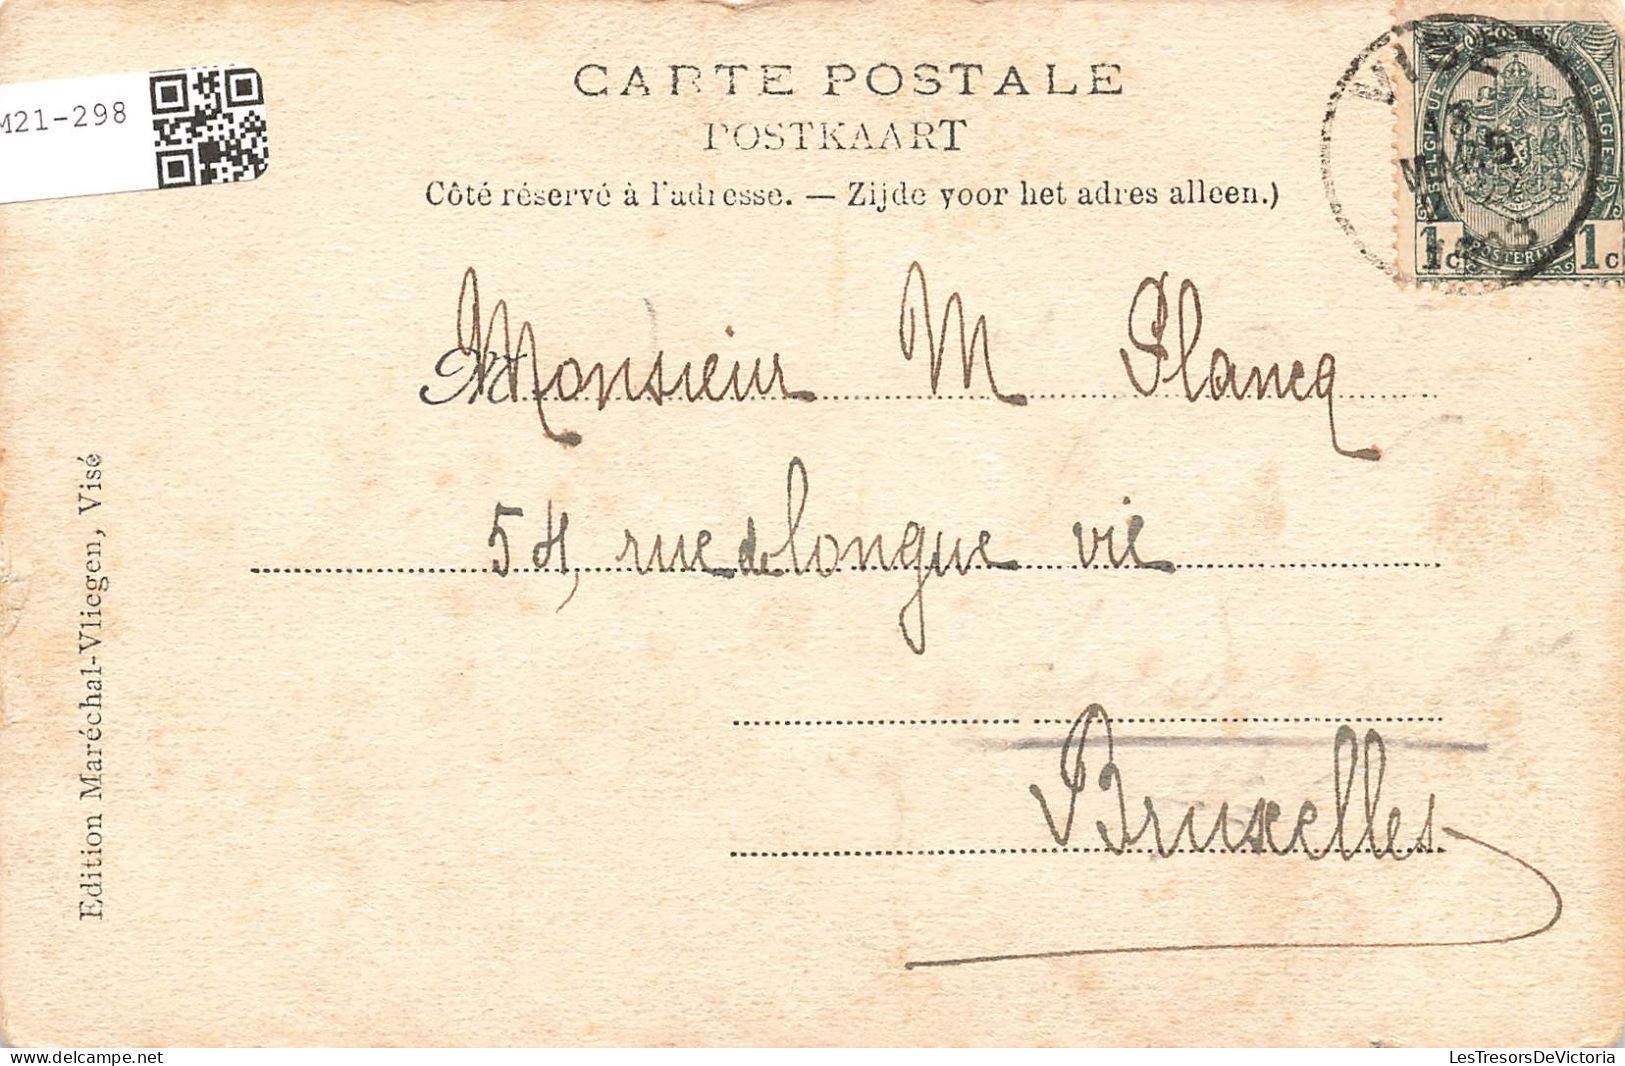 M21-298
CARTE POSTALE
POSTKAART
Côté réservé à l'adresse. — Zijde voor het adres alleen.)
VISÉ
MARS
POSTES
BELGIQUE
BELGIE
1c 1c
M Monsieur M Plancq
54, rue de longue vie
Bruxelles
Edition Maréchal-Vliegen, Visé
LesTresorsDeVictoria